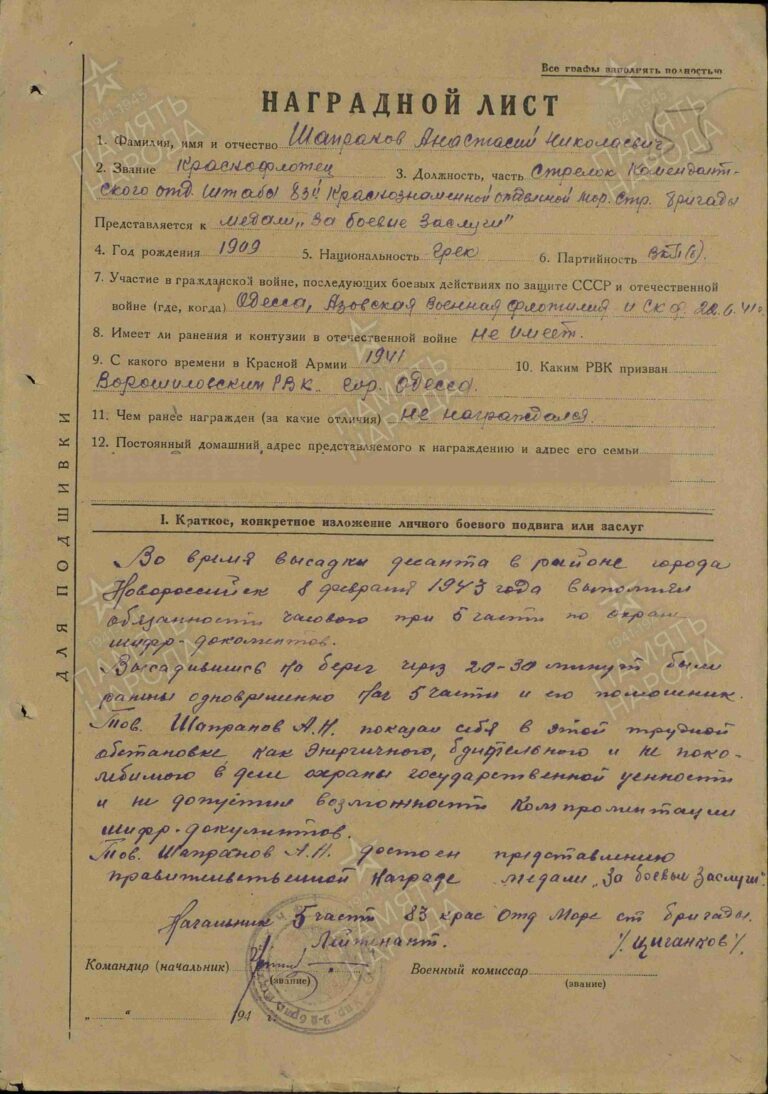 Все графы заполнять полностью
НАГРАДНОЙ ЛИСТ
57
1. Фамилия, имя и отчество Шапранов Анастасий Николаевич
2. Звание Краснофлотец 3. Должность, часть Стрелок Комендант-
ского отд. штаба 83й Краснознаменной отдельной мор. стр. бригады
Представляется к медали „За боевые заслуги"
4. Год рождения 1909 5. Национальность грек 6. Партийность ВКП(б).
7. Участие в гражданской войне, последующих боевых действиях по защите СССР и отечественной
войне (где, когда) Одесса, Азовская военная флотилия и СКФ 22.6.41г.
8. Имеет ли ранения и контузии в отечественной войне не имеет.
9. С какого времени в Красной Армии 1941 10. Каким РВК призван
Ворошиловским РВК гор. Одесса.
11. Чем ранее награжден (за какие отличия) не награждался.
12. Постоянный домашний адрес представляемого к награждению и адрес его семьи
I. Краткое, конкретное изложение личного боевого подвига или заслуг
Во время высадки десанта в районе города
Новороссийск 8 февраля 1943 года выполнял
обязанности часового при 5 части по охран
шифр-документов.
Высадившись на берег через 20-30 минут были
ранены одновременно нач 5 части и его помошник.
Тов. Шапранов А.Н. показал себя в этой трудной
обстановке как энергичного, бдительного и не поко-
лебимого в деле охраны государственной ценности
и не допустил возможности компроментации
шифр-документов.
Тов. Шапранов А.Н. достоен представлению
правительственной награде медали „За боевые заслуги".
Начальник 5 части 83 крас отд морс ст бригады.
Лейтенант. /Циганков/.
Командир (начальник) Военный комиссар
(звание) (звание)
„ “ 194 г.
ДЛЯ ПОДШИВКИ
1941-1945
ПАМЯТЬ
НАРОДА